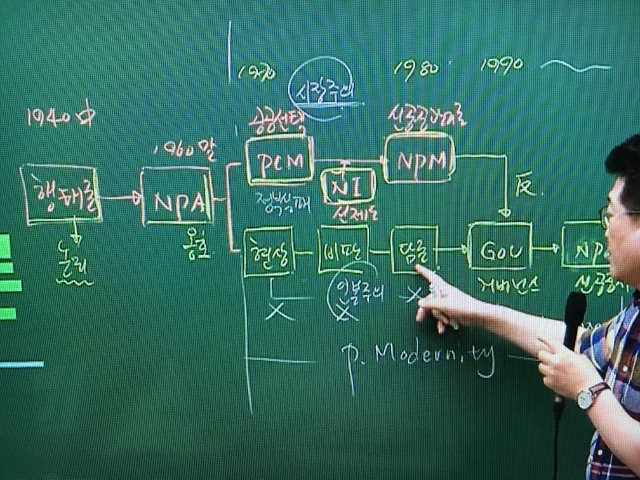 1970 시장주의 1980. 1990
1940中
1960말 공공선택 신공공관리
행태론 NPA PCM NI NPM
정부실패 신제도 反.
현상 비판 담론 GOV NP
거버넌스
인본주의
X X X
P. Modernity